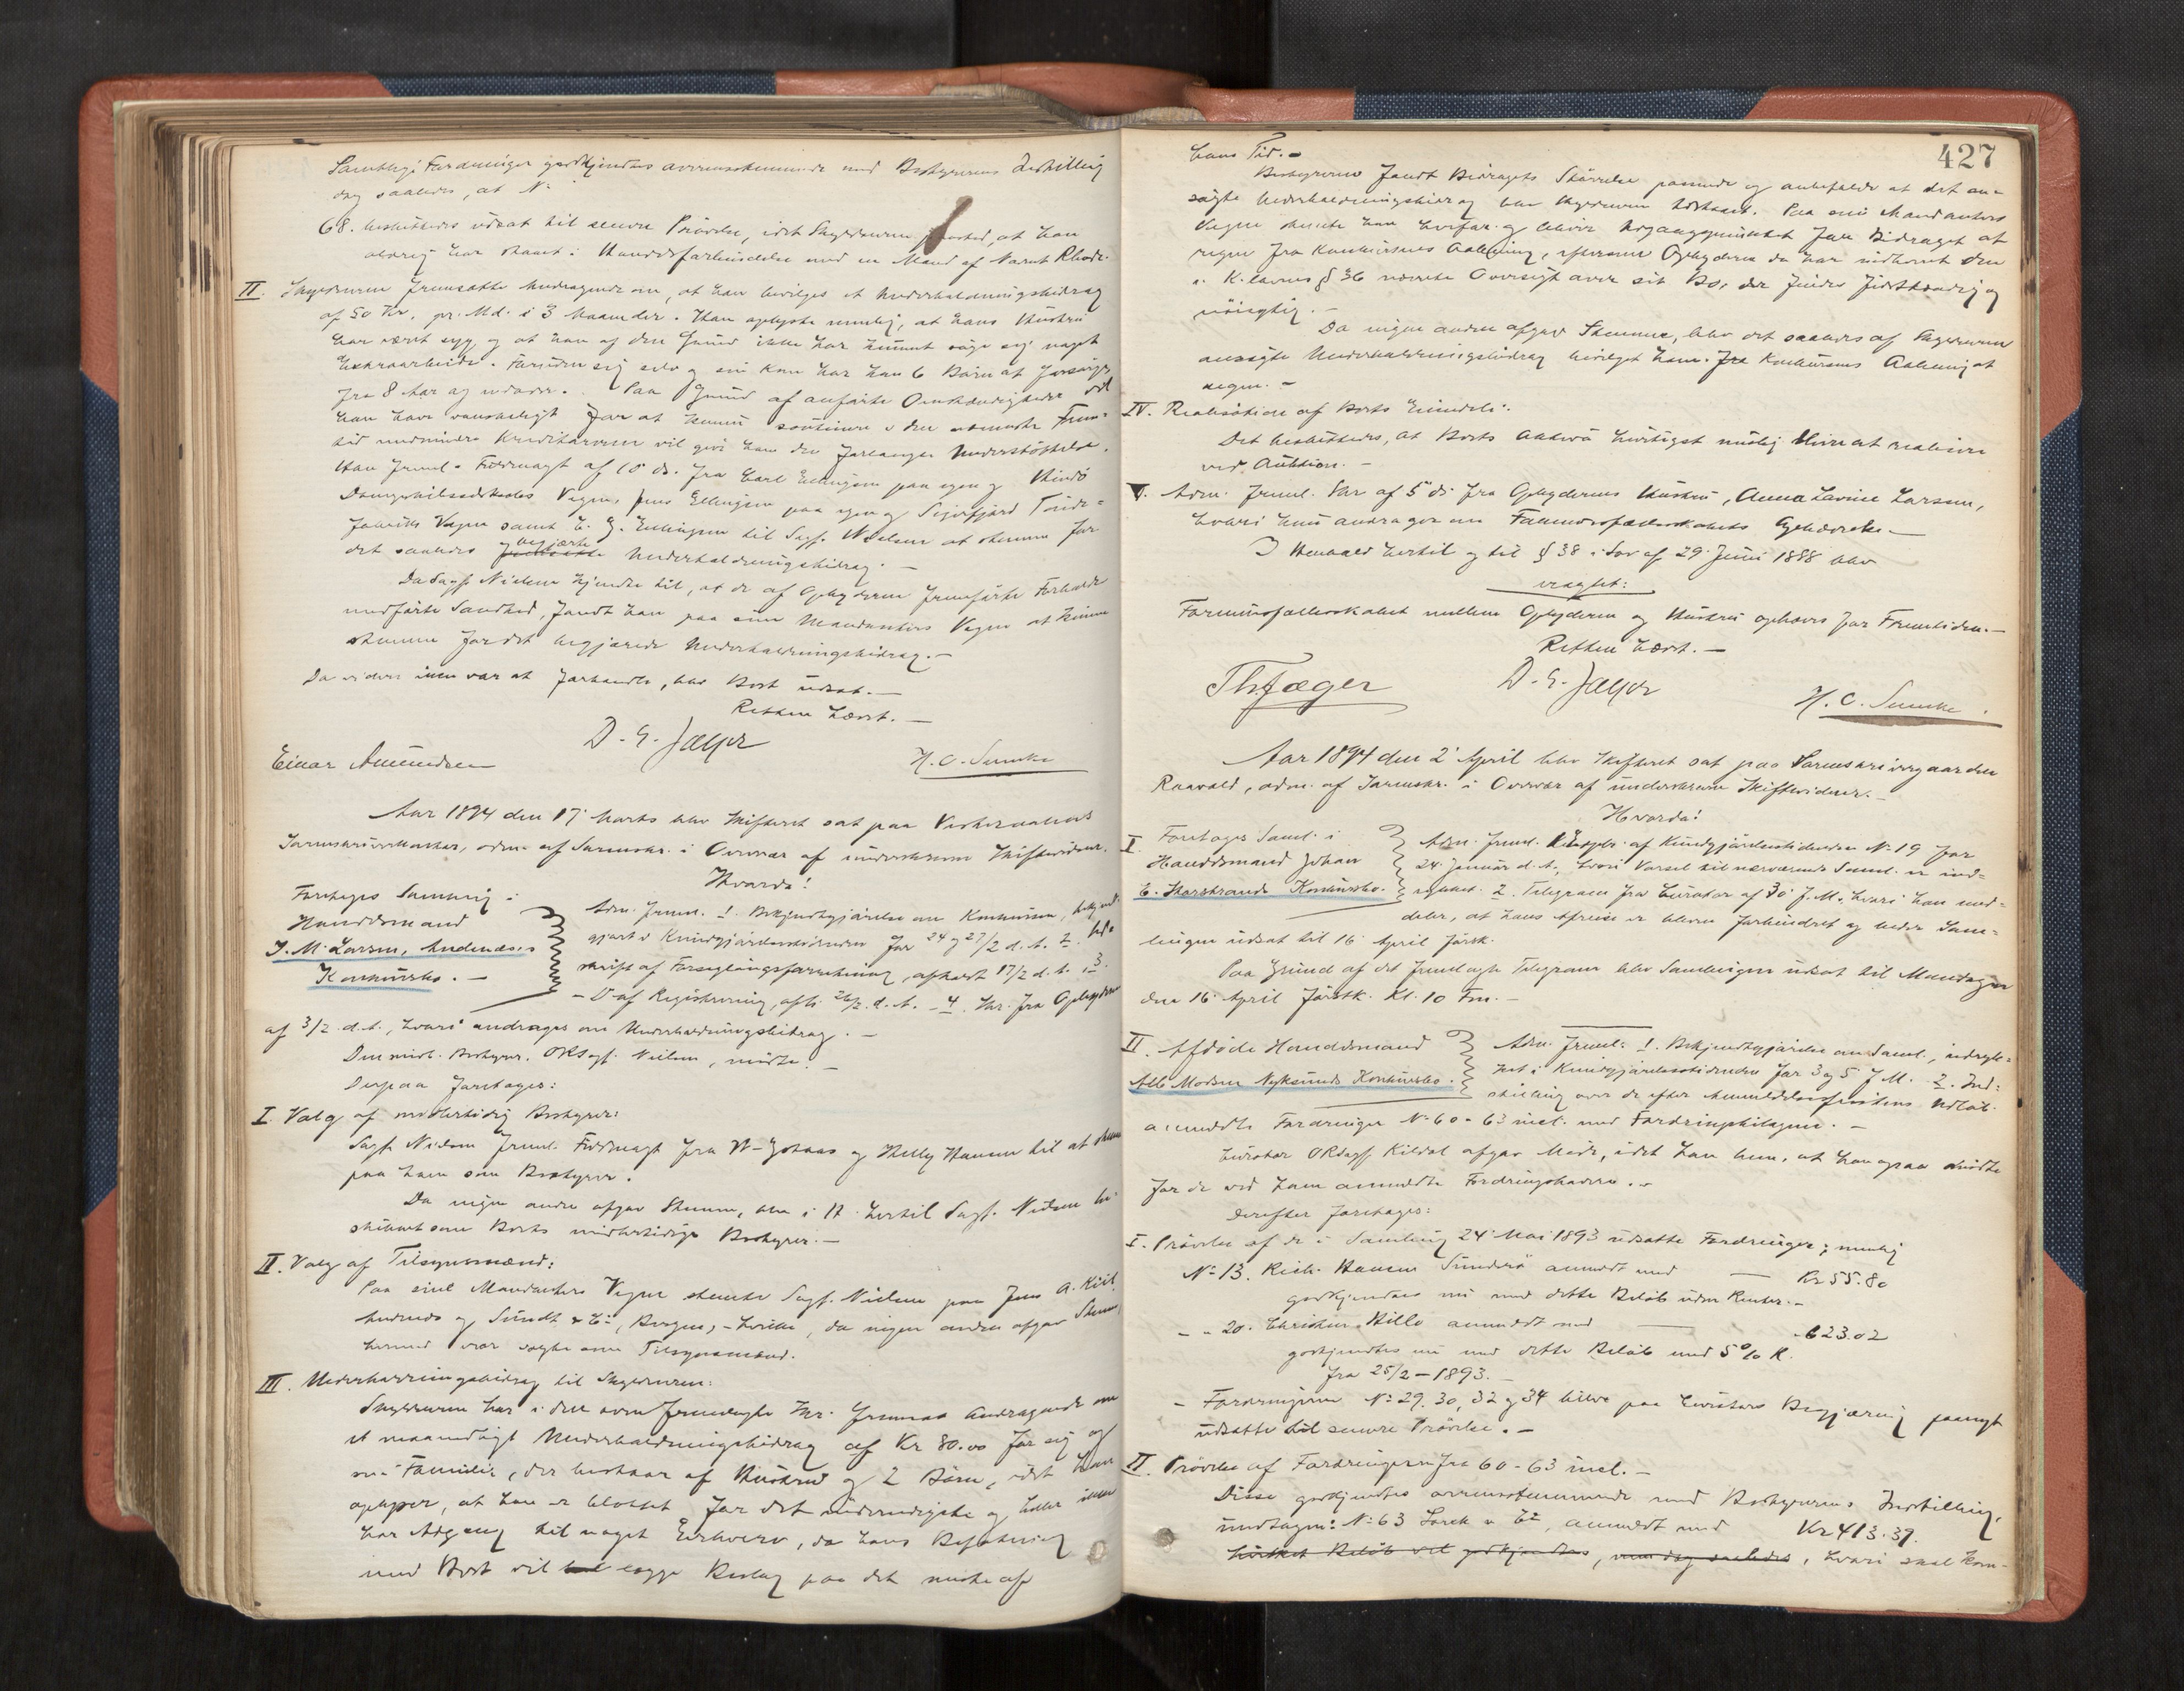 Samtlige Fordringer godkjendtes overensstemmende med Bestyrerens Indstilling
dog saaledes, at No
68. besluttedes udsat til senere Prøvelse, idet Skyldneren paastod, at han
aldrig har staaet i Handelsforbindelse med en Mand af Navnet Rhode.
II. Skyldneren fremsatte Andragende om, at han bevilges et Underholdningsbidrag
af 50 Kr. pr. Md. i 3 Maaneder. Han oplyste nemlig, at hans Hustru
har været syg og at han af den Grund ikke har kunnet søge sig noget
Extraarbeide. Foruden sig selv og sin Kone har han 6 Børn at forsørge
fra 8 Aar og nedover. Paa Grund af anførte Omstændigheder vil
han have vanskeligt for at kunne existere i den nærmeste Frem-
tid medmindre Kreditorerne vil give ham den forlangte Understøttelse.
Han freml. Fuldmagt af 15 ds. fra Carl Ellingsen paa egen og Hindø
Dampskibsselskabs Vegne, Jens Ellingsen paa egen og Sigerfjord Tønde-
fabriks Vegne samt E. G. Ellingsen til Sagf. Nielsen at stemme for
det saaledes begjærte Underholdningsbidrag. —
Da Sagf. Nielsen kjendte til, at de af Opbyderen fremførte Forholde
medførte Sandhed, fandt han paa sine Mandanters Vegne at kunne
stemme for det begjærede Underholdningsbidrag. —
Da videre intet var at forhandle, blev Boet udsat. —
Retten hævet. —
Einar Amundsen D. G. Jæger H. C. Suneke
Aar 1894 den 17 Marts blev Skifteret sat paa Vesteraalens
Sorenskriverkontor, adm. af Sorenskr. i Overvær af underskrevne Skiftevidner.
Hvorda!
Foretages Samling i
Handelsmand
J. M. Larsen, Andenæs's
Konkursbo. —
Adm. freml. 1. Bekjendtgjørelse om Konkursen, bekjendt-
gjort i Kundgjørelsestidenden for 24 og 27/2 d. A. 2. Ud-
skrift af Forseglingsforretning, afholdt 17/2 d. A. 3.
— D af Registrering, afh. 26/2 d. A. — 4. Skr. fra Opbyderen
af 3/2 d. A., hvori andrages om Underholdningsbidrag. —
Den midl. Bestyrer, ORSagf. Nielsen, mødte. —
Derpaa foretages:
I. Valg af midlertidig Bestyrer:
Sagf. Nielsen freml. Fuldmagt fra W. og Helly Hansen til at stemme
paa ham som Bestyrer.
Da ingen andre afgav Stemme, blev i H. hertil Sagf. Nielsen be-
skikket som Boets midlertidige Bestyrer. —
II. Valg af Tilsynsmænd:
Paa sine Mandanters Vegne stemte Sagf. Nielsen paa Jens A. Kiil,
Andenæs og Sundt & Co, Bergen, — hvilke, da ingen andre afgav Stemme,
hermed var valgte som Tilsynsmænd.
III. Underholdningsbidrag til Skyldneren:
Skyldneren har i den ovenfremlagte Skr. fremsat Andragende om
et maanedligt Underholdningsbidrag af Kr 80.00 for sig og
sin Familie, der bestaar af Hustru og 2 Børn, idet han
oplyser, at han er blottet for det nødvendigste og heller ikke
har Adgang til noget Erhverv, da hans Befatning
med Boet vil lægge Beslag paa det meste af
427
hans Tid. —
Bestyreren fandt Bidragets Størrelse passende og anbefalede at det an-
søgte Underholdningsbidrag blev Skyldneren tilstaaet. Paa sine Mandanters
Vegne stemte han herfor og blev Udgangspunktet for Bidraget at
regne fra Konkursens Aabning, eftersom Opbyderen da har indkomt den
i K.lovens § 36 nævnte Oversigt over sit Bo, der findes fuldstændig og
nøiagtig. —
Da ingen andre afgav Stemme, blev det saaledes af Skyldneren
ansøgte Underholdningsbidrag bevilget ham fra Konkursens Aabning at
regne. —
IV. Realisation af Boets Eiendele:
Det besluttedes, at Boets Aktiva hurtigst mulig blive at realisere
ved Auktion. —
V. Adm. freml. Skr af 5 ds fra Opbyderens Hustru, Anna Lavine Larsen,
hvori hun andrager om Formuesfællesskabets Ophævelse. —
I Henhold hertil og til § 38 i Lov af 29 Juni 1888 blev
eragtet:
Formuesfællesskabet mellem Opbyderen og Hustru ophæves for Fremtiden. —
Retten hævet. —
Th. Jæger D. G. Jæger H. C. Suneke.
Aar 1894 den 2 April blev Skifteret sat paa Sorenskrivergaarden
Raavold, adm. af Sorenskr. i Overvær af underskrevne Skiftevidner. —
Hvorda!
I. Foretages Saml. i
Handelsmand Johan
E. Storstrands Konkursbo.
Adm. freml. 1. Expl. af Kundgjørelsestidenden No 19 for
24 Januar d. A., hvori Varsel til nærværende Saml. er ind-
rykket. 2. Telegram fra Curator af 30 f. M., hvori han med-
deler, at hans Afreise er bleven forhindret og beder Sam-
lingen udsat til 16 April førstk.
Paa Grund af det fremlagte Telegram blev Samlingen udsat til Mandagen
den 16 April førstk. Kl. 10 Fm. —
II. Afdøde Handelsmand
Alb. Madsen Nyksunds Konkursbo.
Adm. freml. 1. Bekjendtgjørelse om Saml., indryk-
ket i Kundgjørelsestidenden for 3 og 5 f M. 2. Ind-
stilling over de efter Anmeldelsesfristens Udløb
anmeldte Fordringer No 60 - 63 incl. med Fordringsbilagene. —
Curator ORSagf Kildal afgav Møde, idet han bem. at han ogsaa mødte
for de ved ham anmeldte Fordringshavere. —
Derefter foretages:
I. Prøvelse af de i Samling 24 Mai 1893 udsatte Fordringer; nemlig
No 13. Rich. Hansen Sunderø anmeldt med — Kr 55.80
godkjendtes nu med dette Beløb uden Renter. —
- " 20. Christian Hille anmeldt med — - 623.02
godkjendtes nu med dette Beløb med 5 % R.
fra 25/2 - 1893. —
- Fordringerne No 29, 30, 32 og 34 bleve paa Curators Begjæring paanyt
udsatte til senere Prøvelse. —
II. Prøvelse af Fordringerne fra 60 - 63 incl. —
Disse godkjendtes overensstemmende med Bestyrerens Indstilling,
undtagen: No 63 & Co, anmeldt med Kr 413.39.
hvilket Beløb vel godkjendtes, men dog saaledes, hvori skal kom-